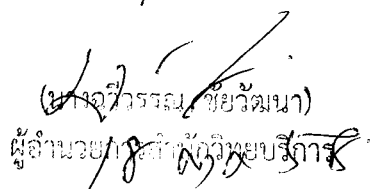 (นางฉวีวรรณ ชัยวัฒนา)
ผู้อำนวยการสำนักวิทยบริการ